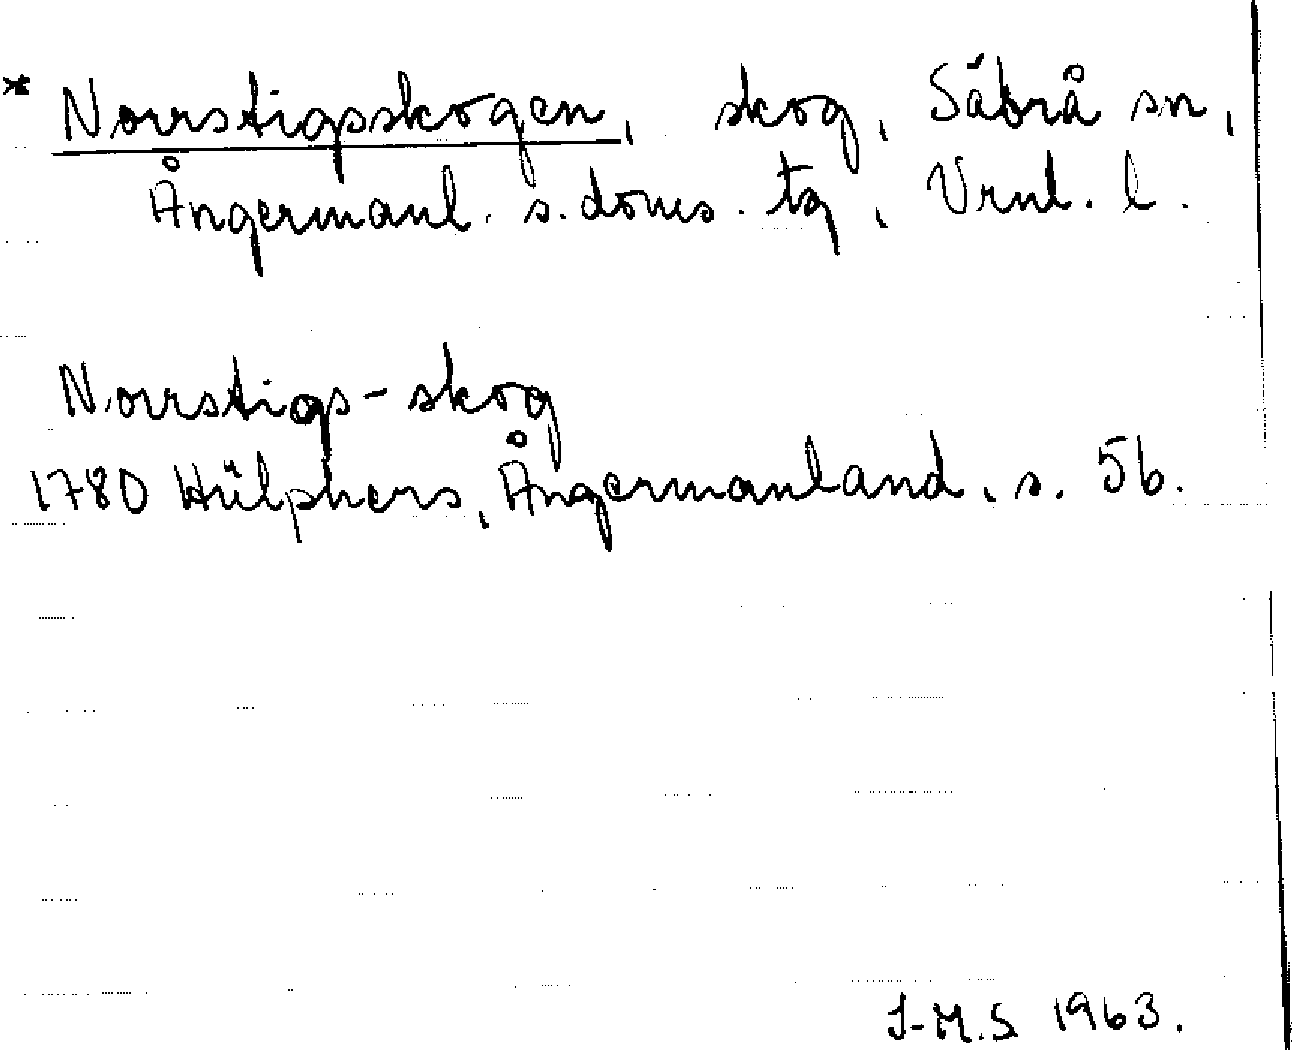 * Norrstigsskogen, skog, Säbrå sn,
Ångermanl. s. doms. tg, Vrnl. l.
Norrstigs-skog
1780 Hülphers, Ångermanland, s. 56.
I-M.S 1963.